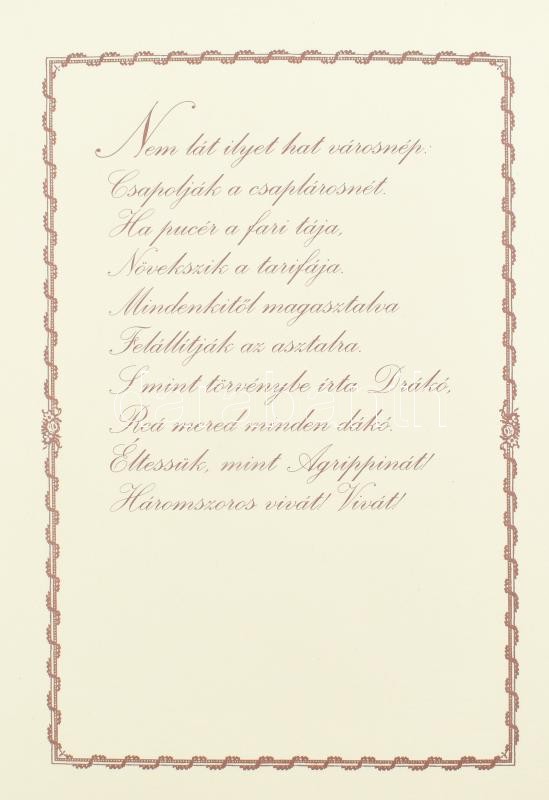 Nem lát ilyet hat városnép:
Csapolják a csaplárosnét.
Ha pucér a fari tája,
Növekszik a tarifája.
Mindenkitől magasztalva
Felállítják az asztalra.
S mint törvénybe írta Drákó,
Reá mered minden dákó.
Éltessük, mint Agrippinát!
Háromszoros vivát! Vivát!